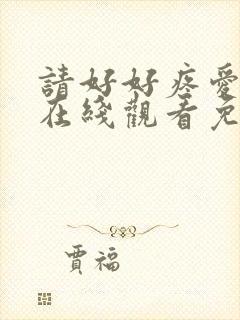 請好好疼愛
在綫觀看免
賈福